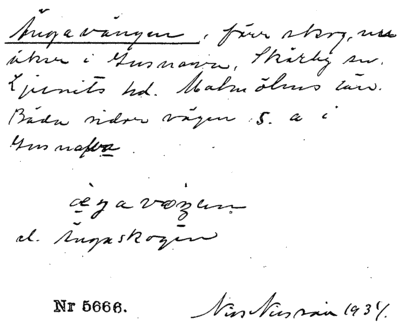 Ängavången, förr skog, nu
åker i Gusnava, Skårby sn.
Ljunits hd. Malmöhus län.
Båda sidor vägen s. a i
Gusnava
el. Ängaskogen
Nr 5666. Nils Nilsson 1934.